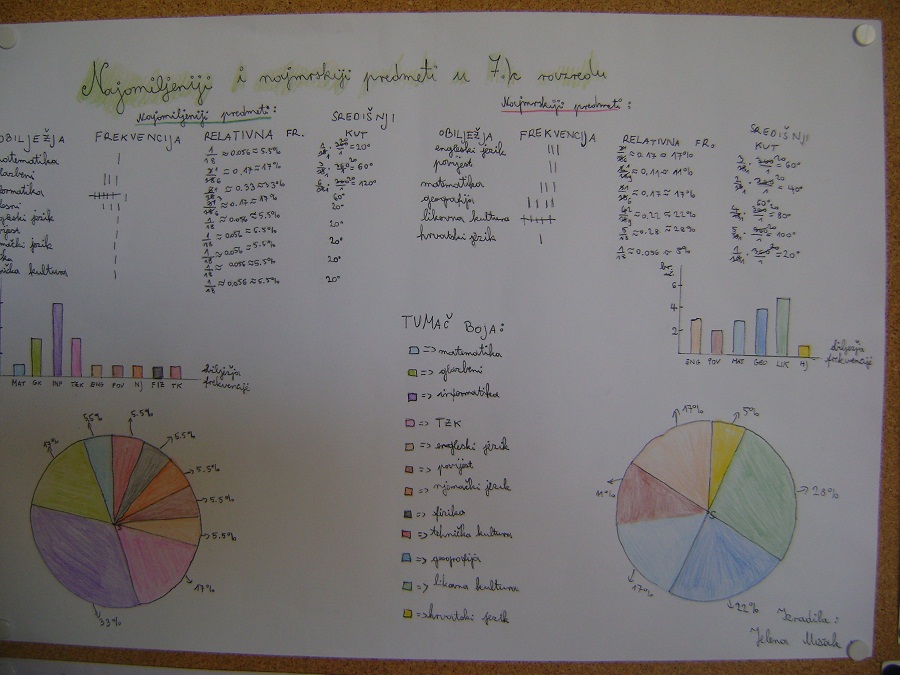 Najomiljeniji i najmrskiji predmeti u 7.k razredu
Najomiljeniji predmeti:
OBILJEŽJA FREKVENCIJA RELATIVNA FR. SREDIŠNJI KUT
matematika | 1/18 ≈ 0.056 ≈ 5.5% = 20°
glazbeni ||| ≈ 0.17 ≈ 17% = 60°
informatika ≈ 0.33 ≈ 33% = 120°
||| ≈ 0.17 ≈ 17% 60°
engleski jezik | 1/18 ≈ 0.056 ≈ 5.5% 20°
| 1/18 ≈ 0.056 ≈ 5.5% 20°
njemački jezik | 1/18 ≈ 0.056 ≈ 5.5% 20°
| 1/18 ≈ 0.056 ≈ 5.5% 20°
tehnička kultura | 1/18 ≈ 0.056 ≈ 5.5% 20°
MAT GK INF TZK ENG POV NJ FIZ TK
obilježja
frekvenciji
5.5% 5.5% 5.5% 5.5% 5.5% 5.5% 17% 33% 17%
S
Najmrskiji predmeti:
OBILJEŽJA FREKVENCIJA RELATIVNA FR. SREDIŠNJI KUT
engleski jezik ||| ≈ 0.17 ≈ 17% = 60°
povijest || ≈ 0.11 ≈ 11% = 40°
matematika ||| ≈ 0.17 ≈ 17%
geografija |||| ≈ 0.22 ≈ 22% = 80°
likovna kultura ≈ 0.28 ≈ 28% = 100°
hrvatski jezik | 1/18 ≈ 0.056 ≈ 5% = 20°
br.
uč.
6
4
2
ENG POV MAT GEO LIK HJ
obilježja
frekvenciji
TUMAČ BOJA:
=> matematika
=> glazbeni
=> informatika
=> TZK
=> engleski jezik
=> povijest
=> njemački jezik
=> fizika
=> tehnička kultura
=> geografija
=> likovna kultura
=> hrvatski jezik
17% 5% 28% 22% 17% 11%
S
Izradila:
Jelena